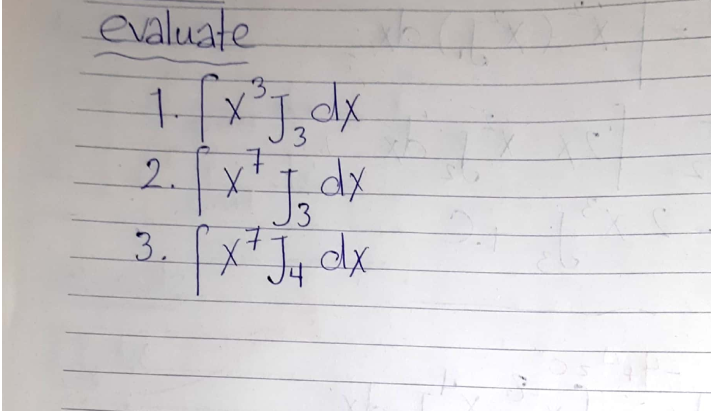 evaluate
1. ∫x³J₃ dx
2. ∫x⁷ J₃ dx
3. ∫x⁷J₄ dx